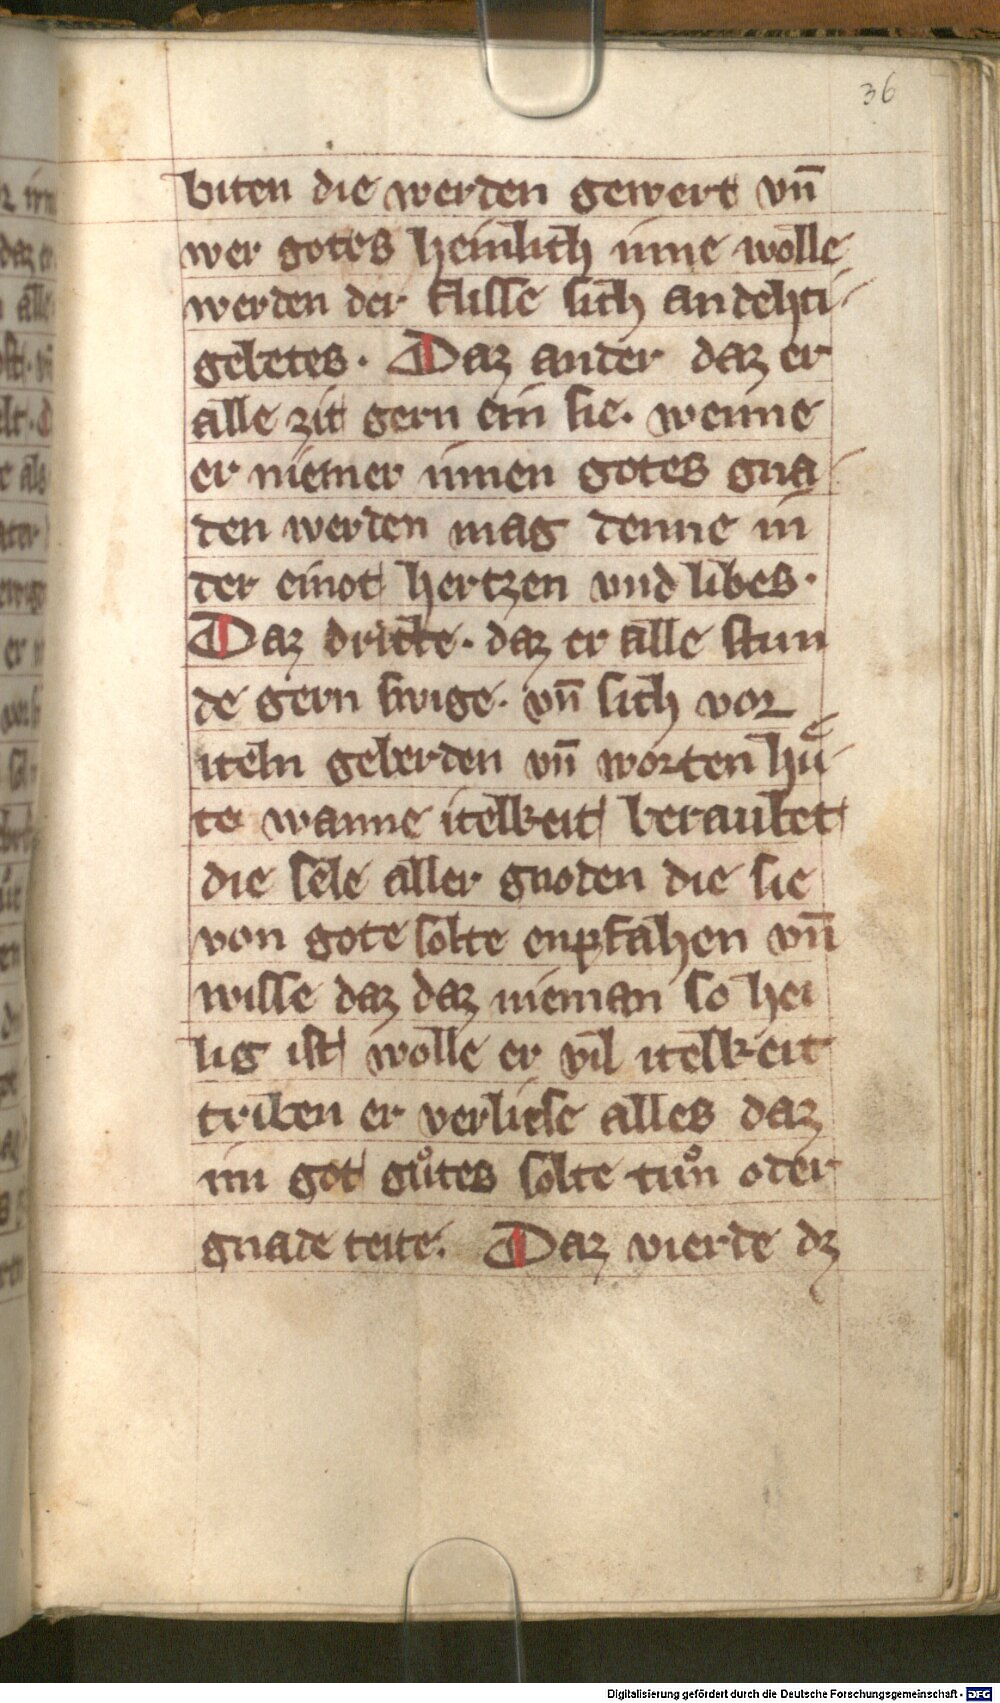 36
biten die werden gewert vn̄
wer gotes heinlich inne wolle
werden der flisse sich andehti
gebetes. Daz ander daz er
alle zit gern ein sie. wenne
er niemer innen gotes gna
den werden mag denne in
der einot hertzen vnd libes.
Daz dritte. daz er alle stun
de gern swige. vn̄ sich vor
iteln geberden vn̄ worten huͤ
te wanne itelkeit beraubet
die sele aller gnoden die sie
von gote solte enpfahen vn̄
wisse daz daz nieman so hei
lig ist wolle er vil itelkeit
triben er verliese alles daz
im got guͦtes solte tuͦn oder
gnade teite. Daz vierde dz
Digitalisierung gefördert durch die Deutsche Forschungsgemeinschaft - DFG